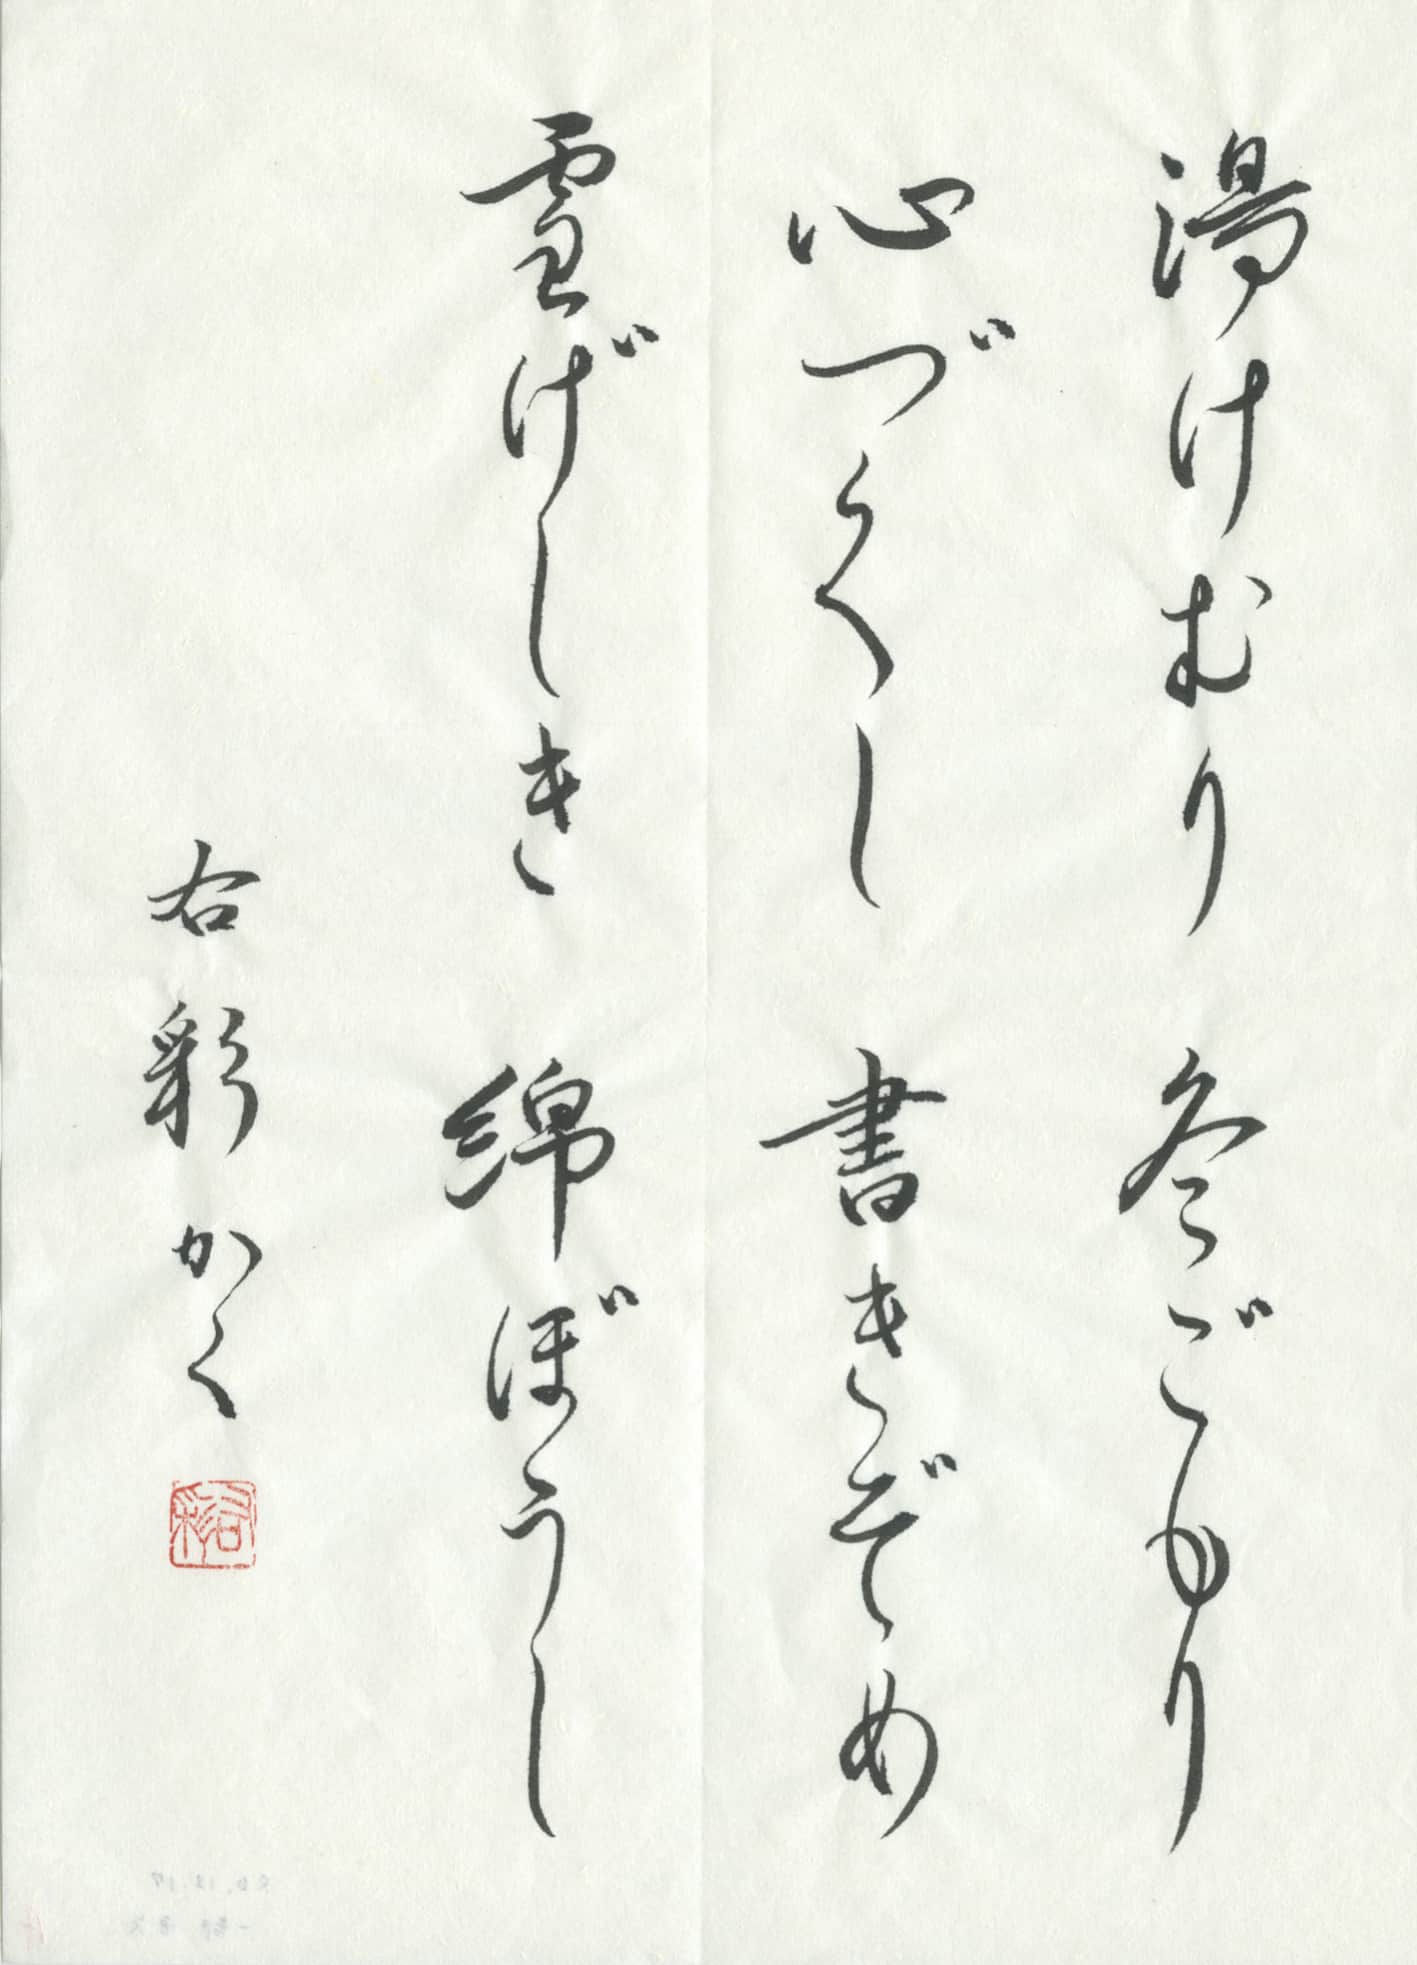 湯けむり 冬ごもり
心づくし 書きぞめ
雪げしき 綿ぼうし
右彩かく